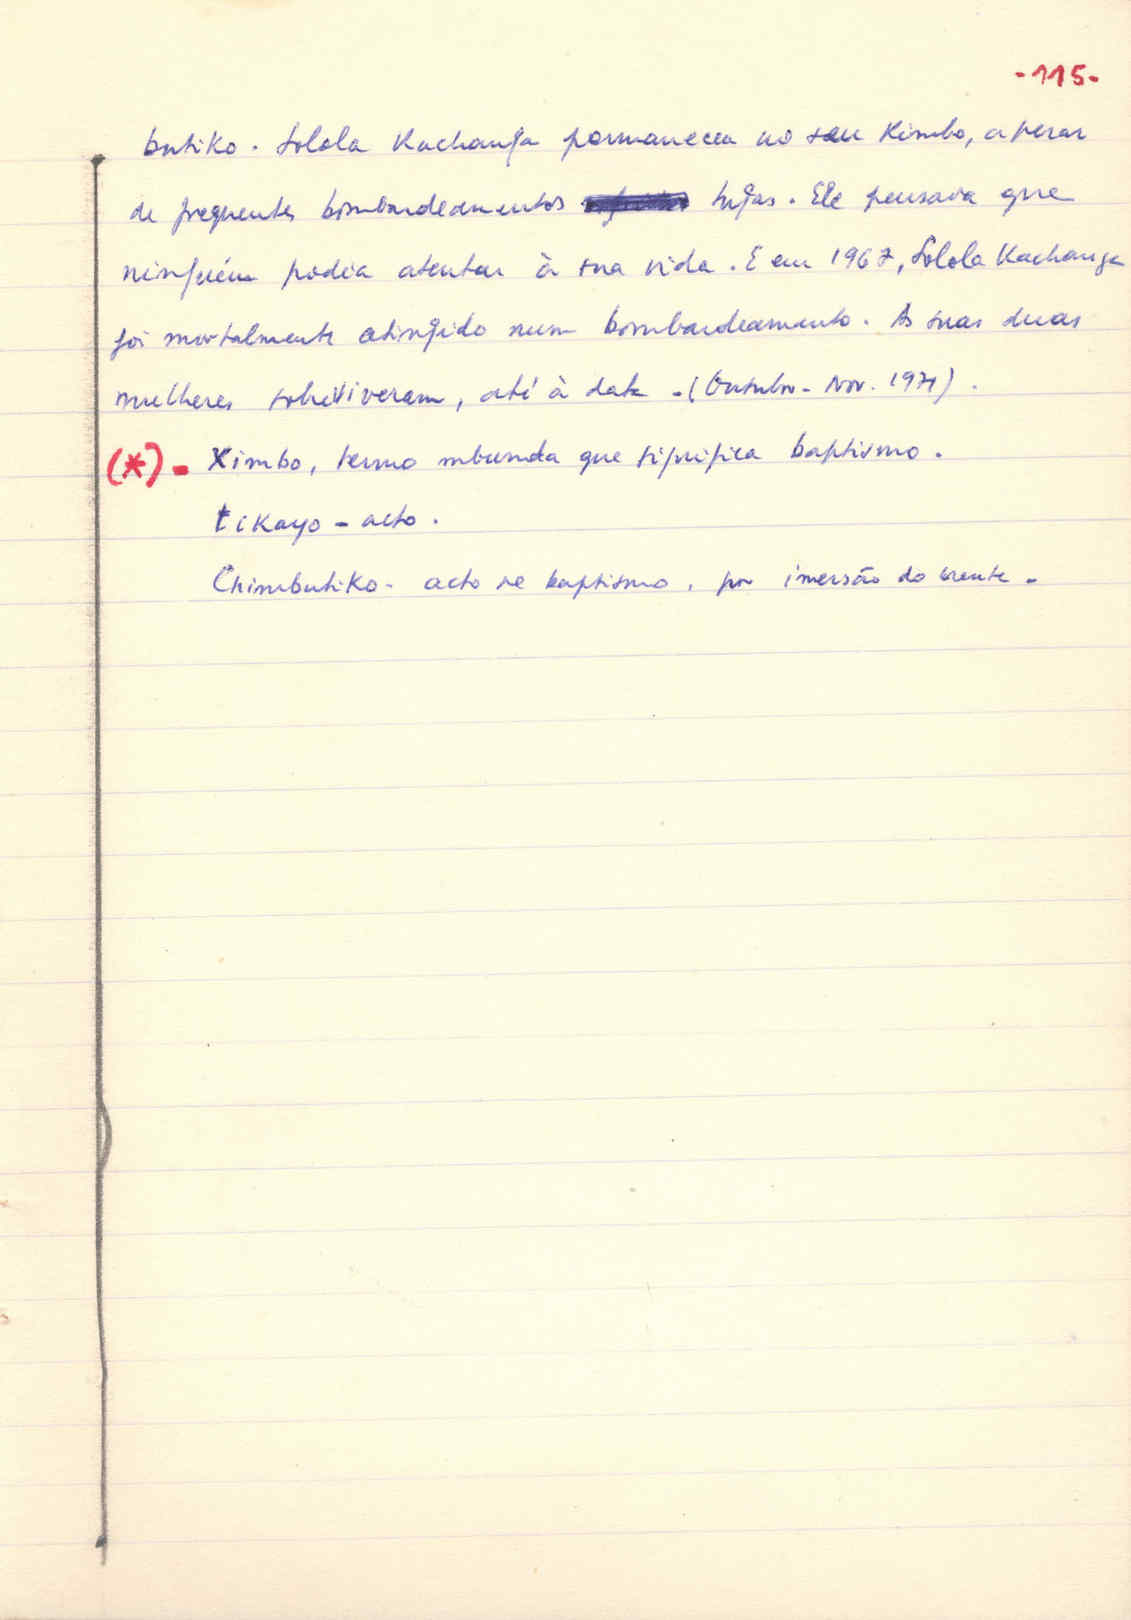 -115-
butiko. Solola Kachanga permaneceu no seu Kimbo, apesar
de frequentes bombardeamentos tugas. Ele pensava que
ninguém podia atentar à sua vida. E em 1967, Solola Kachanga
foi mortalmente atingido num bombardeamento. As suas duas
mulheres sobreviveram, até à data -(Outubro- Nov. 1971).
(*)- Ximbo, termo mbunda que significa baptismo.
tikayo - acto.
Chimbutiko - acto de baptismo, por imersão do crente.